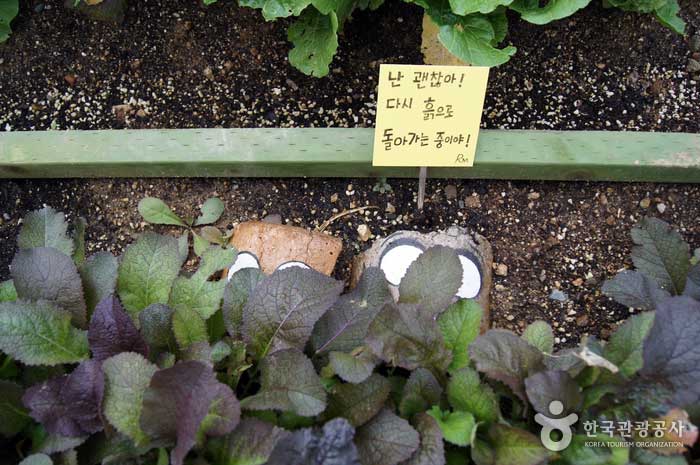 난 괜찮아!
다시 흙으로
돌아가는 중이야!
Rm
한국관광공사
KOREA TOURISM ORGANIZATION